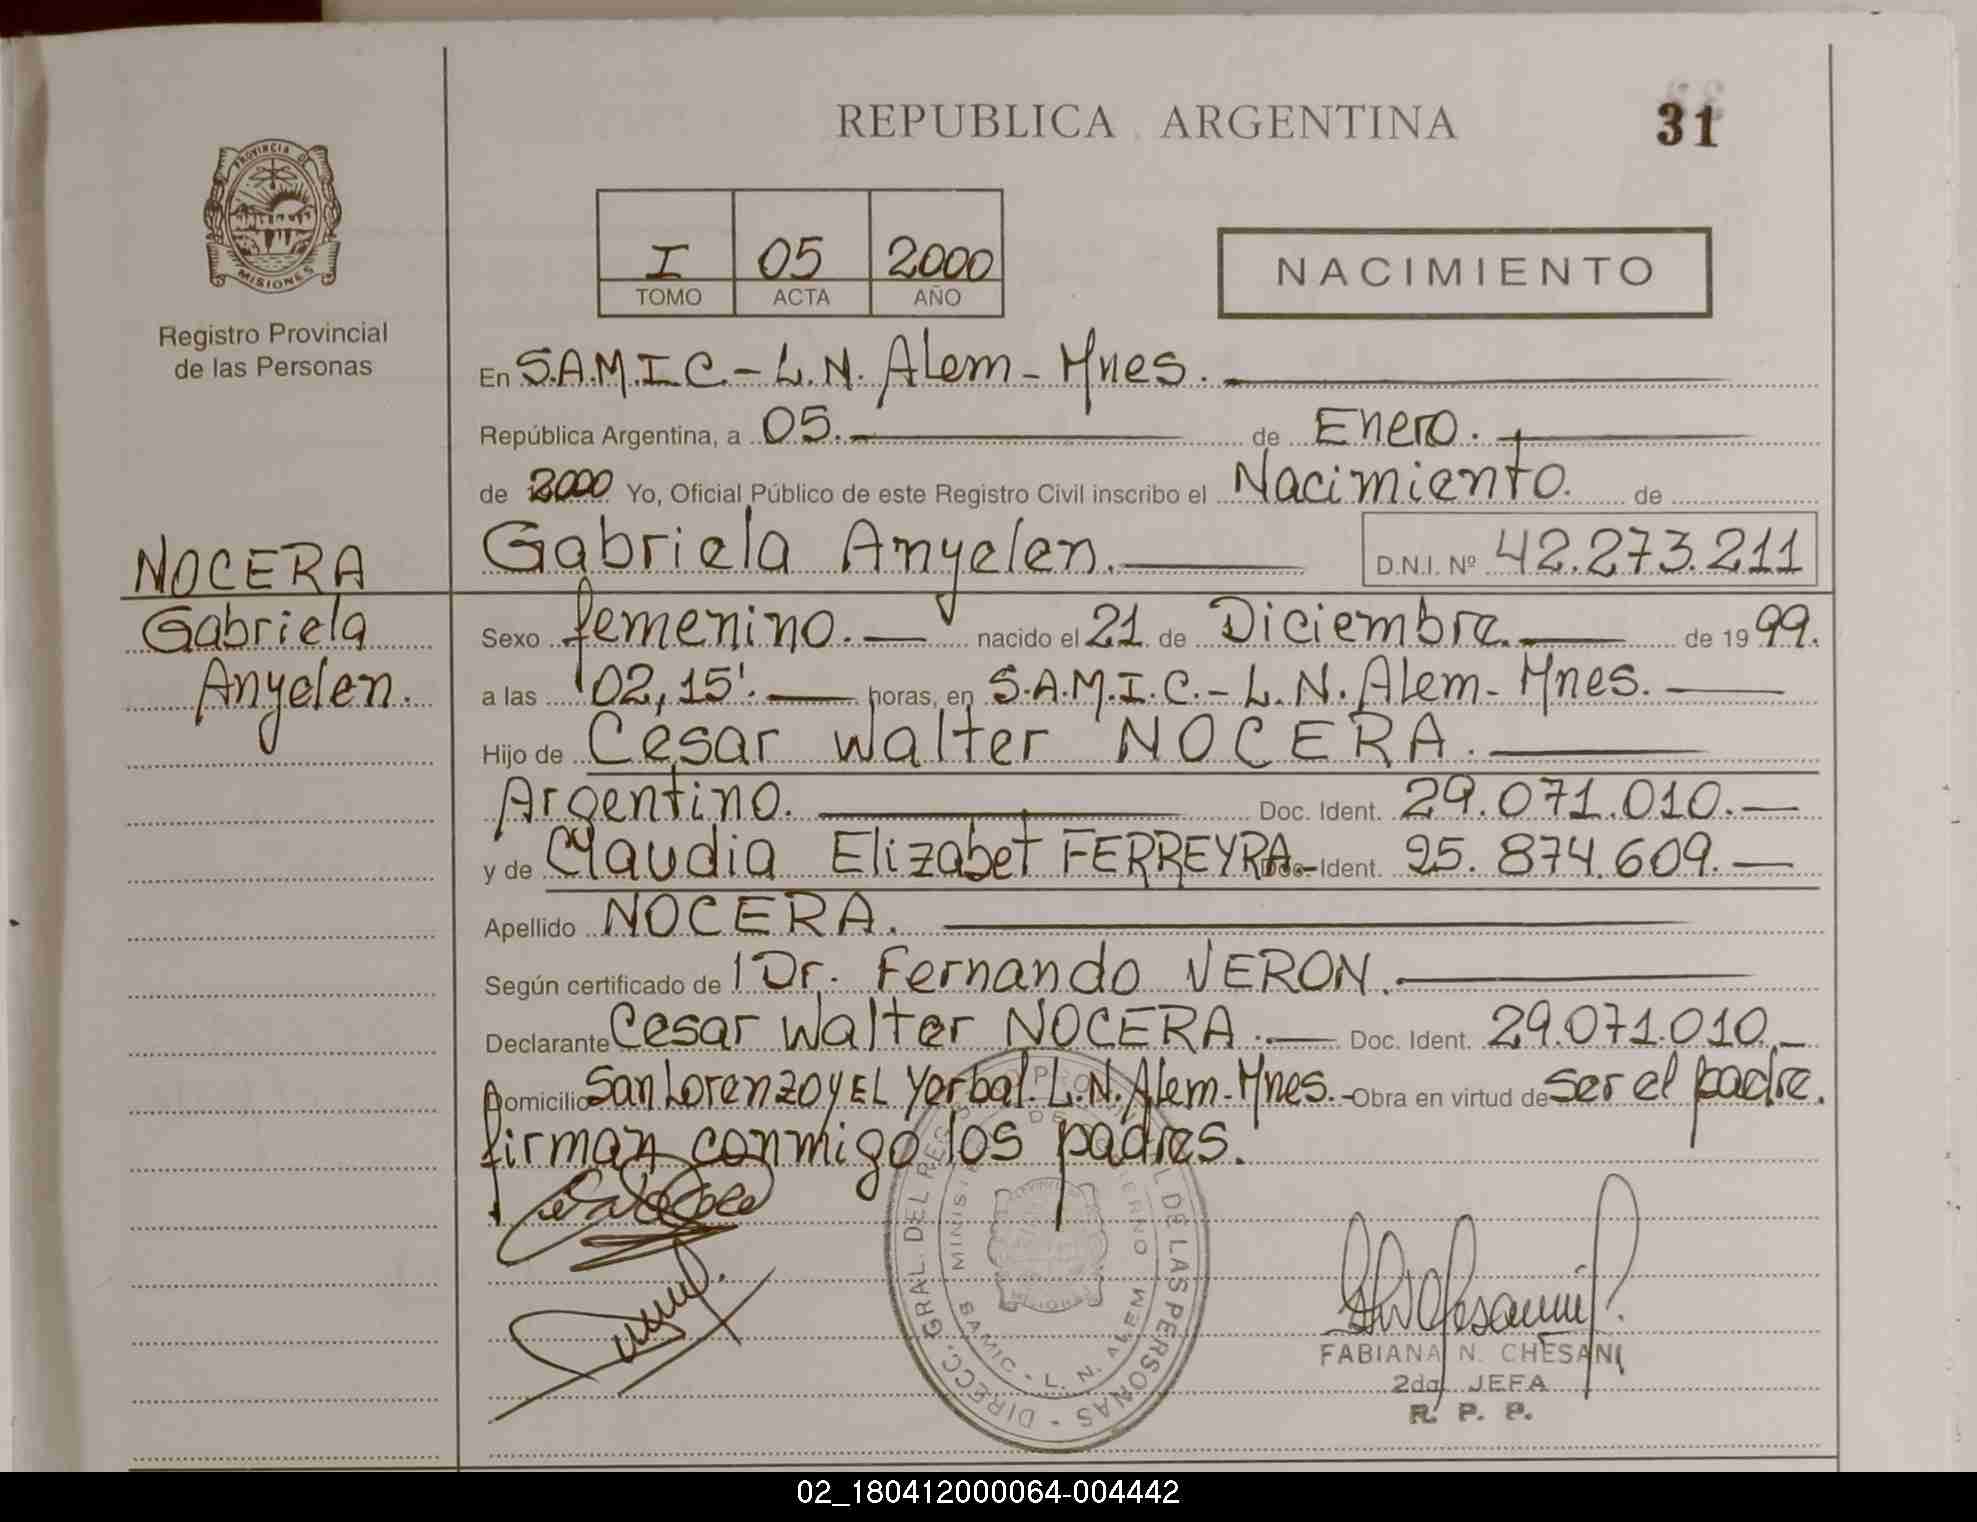 REPUBLICA ARGENTINA
31
PROVINCIA DE
MISIONES
Registro Provincial
de las Personas
I 05 2000
TOMO ACTA AÑO
NACIMIENTO
En S.A.M.I.C.- L.N. Alem - Mnes.
República Argentina, a 05. de Enero.
de 2000 Yo, Oficial Público de este Registro Civil inscribo el Nacimiento. de
Gabriela Anyelen. D.N.I. Nº 42.273.211
NOCERA
Gabriela
Anyelen.
Sexo femenino. nacido el 21 de Diciembre. de 19 99.
a las 02,15'. horas, en S.A.M.I.C.- L.N. Alem- Mnes.
Hijo de Cesar Walter NOCERA.
Argentino. Doc. Ident. 29.071.010.
y de Claudia Elizabet FERREYRA.- Doc. Ident. 25.874.609.
Apellido NOCERA.
Según certificado de Dr. Fernando VERON.
Declarante Cesar Walter NOCERA. Doc. Ident. 29.071.010.
Domicilio San Lorenzo y EL Yerbal. L.N. Alem- Mnes.- Obra en virtud de ser el padre.
firman conmigo los padres.
DIRECC. GRAL. DEL DE LAS PERSONAS
SAMIC - L. N. ALEM
FABIANA N. CHESANI
2da JEFA
R. P. P.
02_180412000064-004442